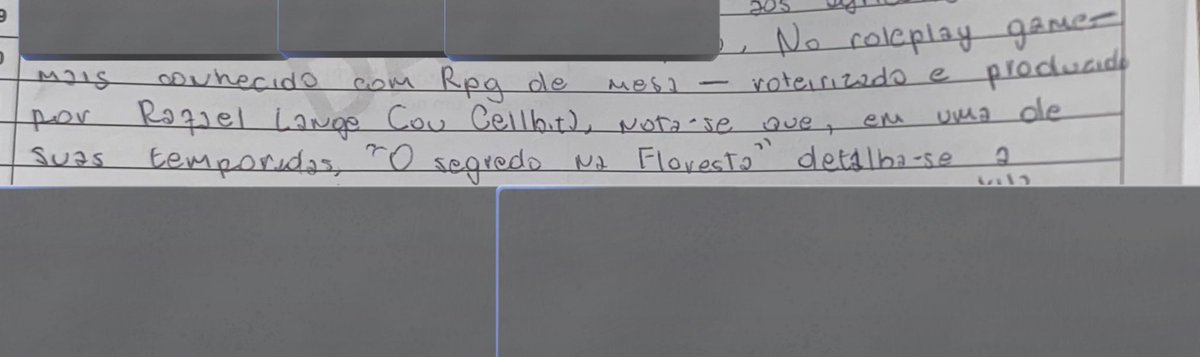 aos
No roleplay game-
mais conhecido com Rpg de mesa — roteirizado e producido
por Rafael Lange (ou Cellbit), nota-se que, em uma de
suas temporadas, "O segredo na Floresta" detalha-se a